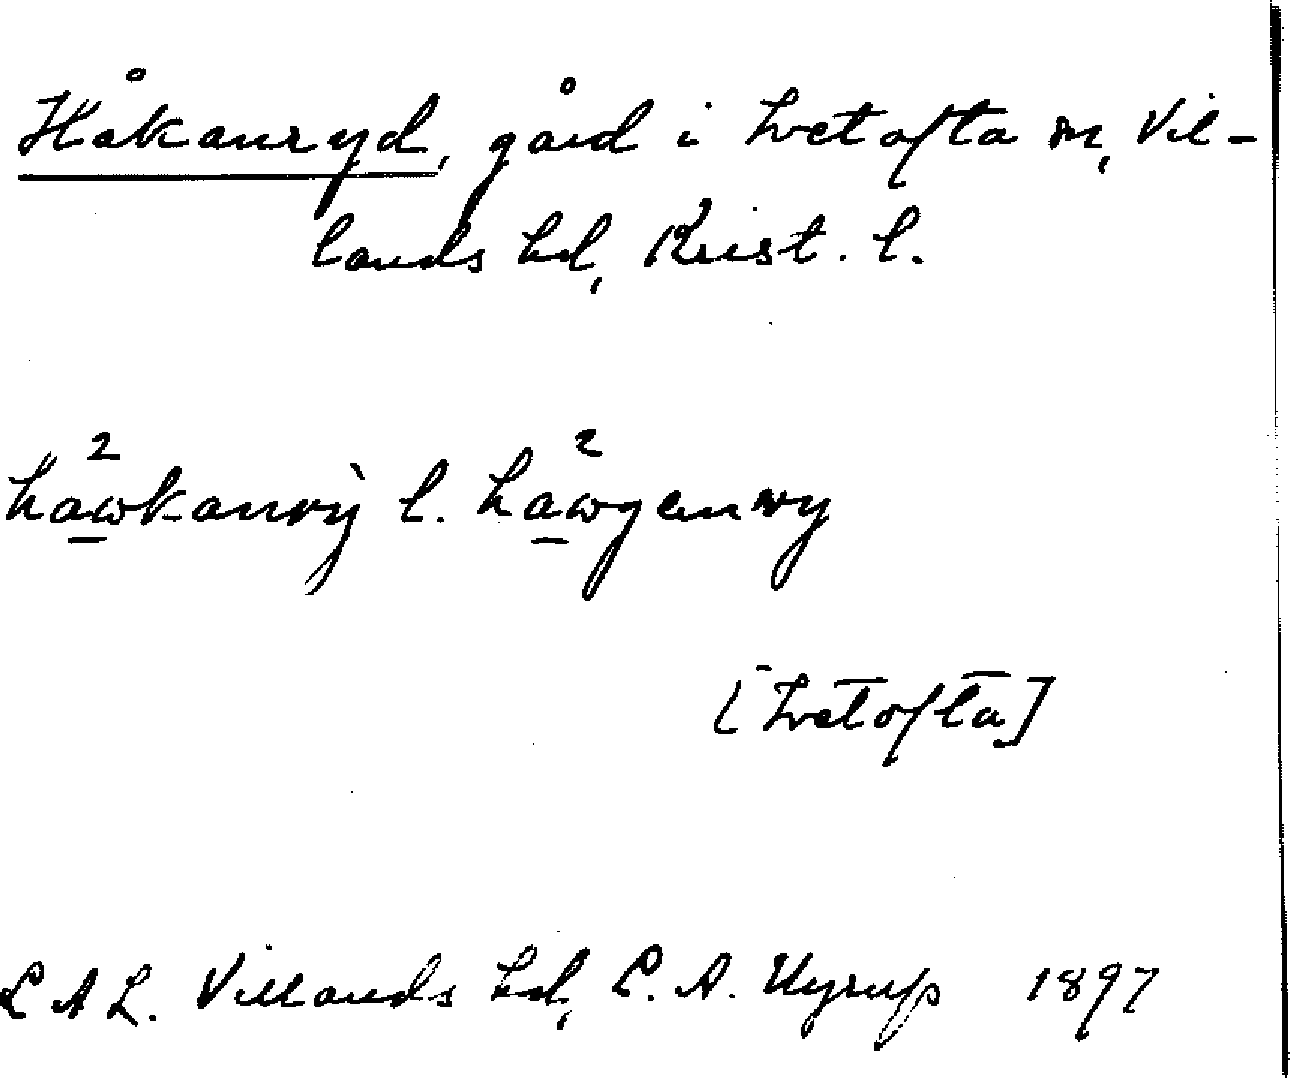 Håkanryd, gård i Ivetofta sn, Vil-
lands hd, Krist. l.
håwkanrỳ l. håwganry
[Ivetofta]
L A L. Villands hd, C. A. Nyrup 1897